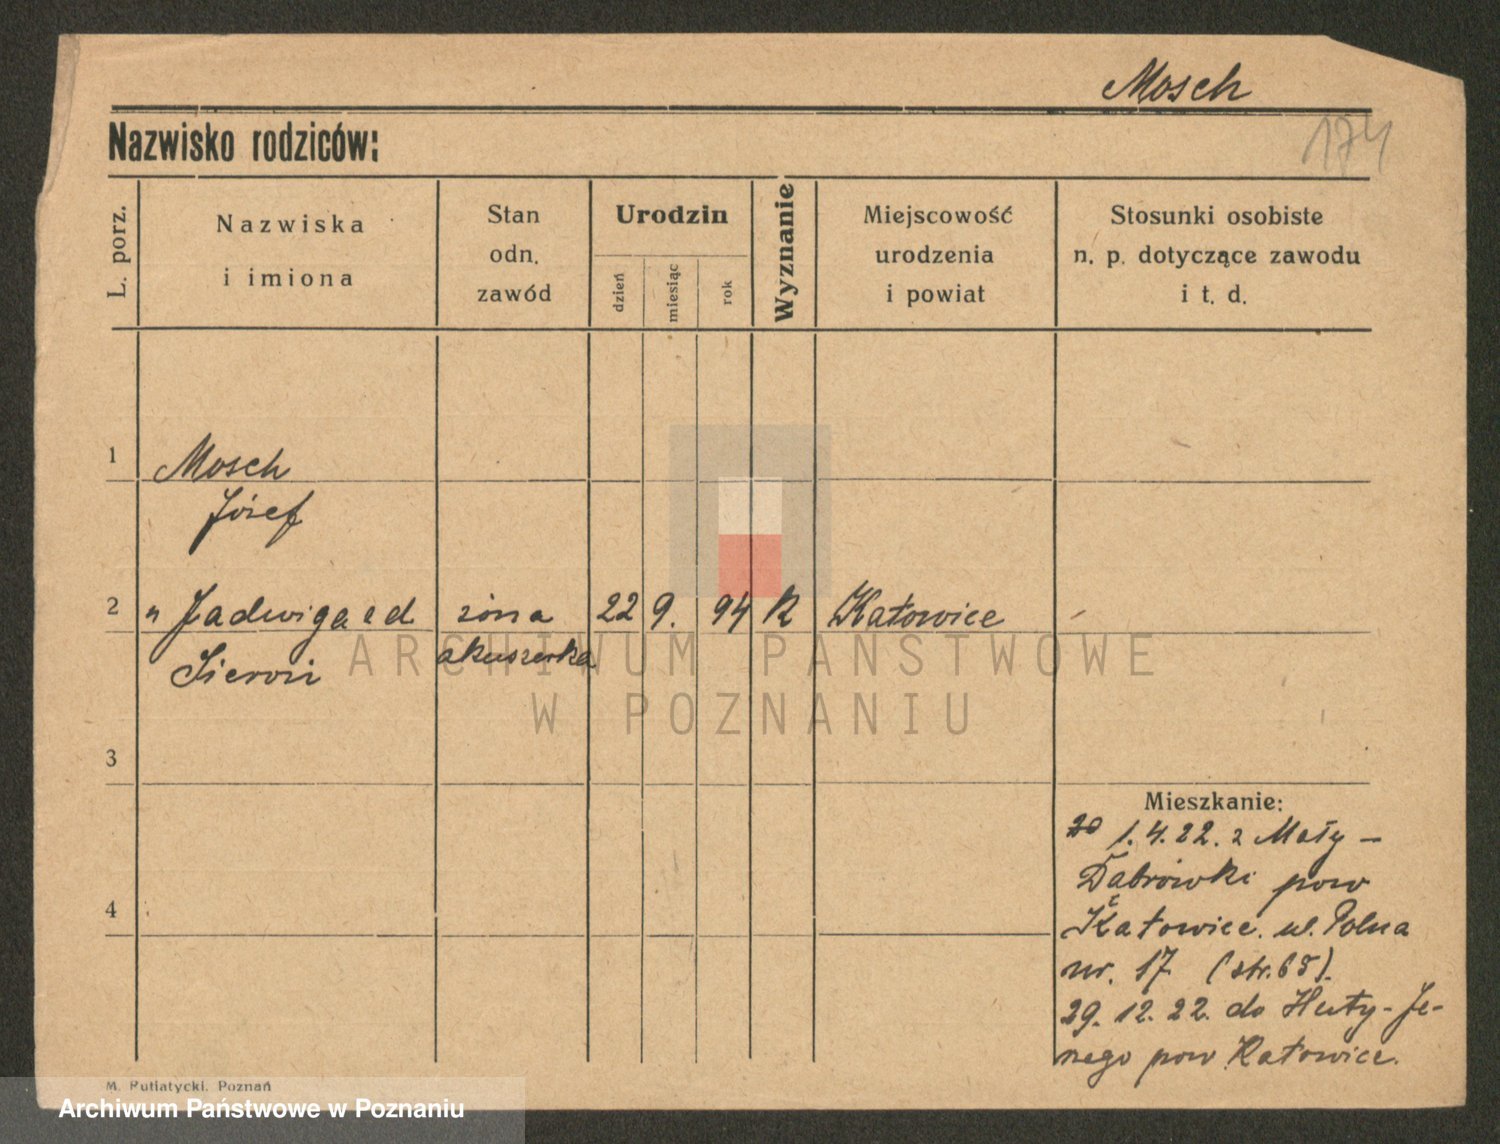 Mosch
Nazwisko rodziców:
174
L. porz.
Nazwiska
i imiona
Stan
odn.
zawód
Urodzin
dzień
miesiąc
rok
Wyznanie
Miejscowość
urodzenia
i powiat
Stosunki osobiste
n. p. dotyczące zawodu
i t. d.
1 Mosch
Józef
2 " Jadwiga z d żona 22 9. 94 K Katowice
Sieroń akuszerka
ARCHIWUM PAŃSTWOWE
W POZNANIU
3
Mieszkanie:
1.4.22. z Mały-
Dąbrówki pow
4
Katowice. ul. Polna
nr. 17 (str. 65).
29.12.22. do Huty-Je-
nego pow Katowice.
M. Putiatycki. Poznań
Archiwum Państwowe w Poznaniu